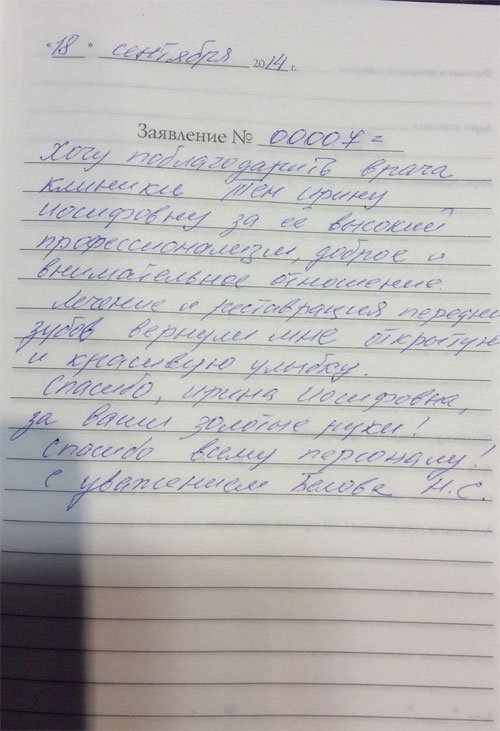 « 18 » сентября 2014 г.
Заявление № 00007=
Хочу поблагодарить врача
клиники Тен Ирину
Иосифовну за её высокий
профессионализм, доброе и
внимательное отношение.
Лечение и реставрация передни
зубов вернули мне открытую
и красивую улыбку.
Спасибо, Ирина Иосифовна,
за Ваши золотые руки!
Спасибо всему персоналу!
С уважением Белова Н.С.